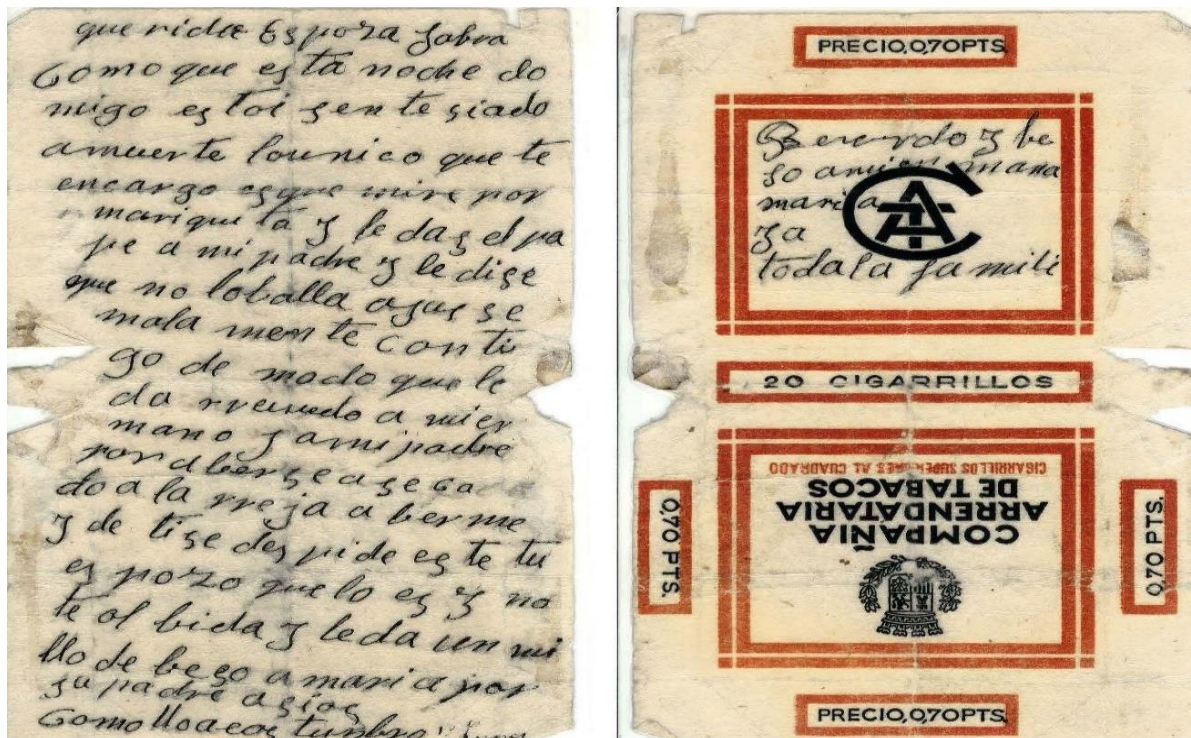 querida Espoza sabra
Como que esta noche do
migo estoi sentesiado
amuerte lounico que te
encargo es que mire por
mariquita y le das el pa
pe a mi padre y le dise
que no loballa aque se
mala mente conti
go de modo que le
da rrecuredo a mi er
mano y amipadre
por aberse aseca
do a la rreja a berme
y de ti se despide este tu
espozo que lo es y no
te olbida y leda un mi
llo de beso a maria por
su padre a sios
Como lloacostunbro
PRECIO,0,70PTS.
Recurdo y be
so ami ermana
maria
ya
toda la famili
CAT
20 CIGARRILLOS
CIGARRILLOS SUPERIORES AL CUADRADO
COMPAÑIA
ARRENDATARIA
DE TABACOS
0,70 PTS.
0,70 PTS.
PRECIO,0,70PTS.